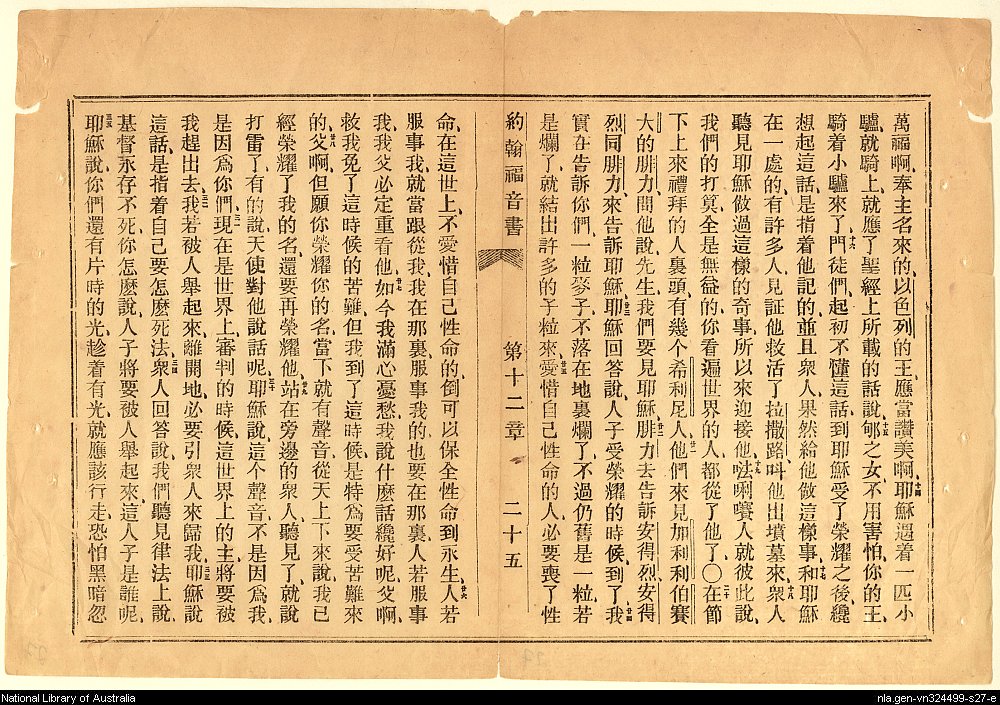 萬福啊、奉主名來的、以色列的王應當讚美啊、十四耶穌遇着一匹小
驢就騎上、就應了聖經上所載的話說、十五郇之女、不用害怕、你的王
騎着小驢來了、十六門徒們、起初不懂這話、到耶穌受了榮耀之後、纔
想起這話、是指着他記的、並且衆人、果然給他做這樣事、十七和耶穌
在一處的、有許多人見証他救活了拉撒路、叫他出墳墓來、十八衆人
聽見耶穌做過這樣的奇事、所以來迎接他、十九㕸唎㘔人就彼此說、
我們的打算全是無益的、你看遍世界的人、都從了他了、〇二十在節
下上來禮拜的人裏頭、有幾个希利尼人、廿一他們來見加利利伯賽
大的腓力、問他說、先生、我們要見耶穌、廿二腓力去告訴安得烈、安得
烈同腓力、來告訴耶穌、廿三耶穌回答說、人子受榮耀的時候、到了、廿四我
實在告訴你們、一粒麥子、不落在地裏爛了、不過仍舊是一粒、若
是爛了、就結出許多的子粒來、廿五愛惜自己性命的人、必要喪了性
約翰福音書 第十二章 二十五
命、在這世上、不愛惜自己性命的、倒可以保全性命到永生、廿六人若
服事我、就當跟從我、我在那裏、服事我的也要在那裏、人若服事
我、我父必定重看他、廿七如今我滿心憂愁、我說什麼話纔好呢、父啊、
救我免了這時候的苦難、但我到了這時候、是特爲要受苦難來
的、廿八父啊、但願你榮耀你的名、當下就有聲音、從天上下來說、我已
經榮耀了我的名、還要再榮耀他、廿九站在旁邊的衆人、聽見了、就說
打雷了、有的說、天使對他說話呢、三十耶穌說、這个聲音、不是因爲我、
是因爲你們、三一現在是世界上審判的時候、這世界上的主、將要被
我趕出去、三二我若被人舉起來、離開地、必要引衆人來歸我、三三耶穌說
這話、是指着自己要怎麽死法、三四衆人回答說、我們聽見律法上說、
基督永存不死、你怎麽說、人子將要被人舉起來、這人子是誰呢、
三五耶穌說、你們還有片時的光、趁着有光、就應該行走、恐怕黑暗忽
National Library of Australia
nla.gen-vn324499-s27-e